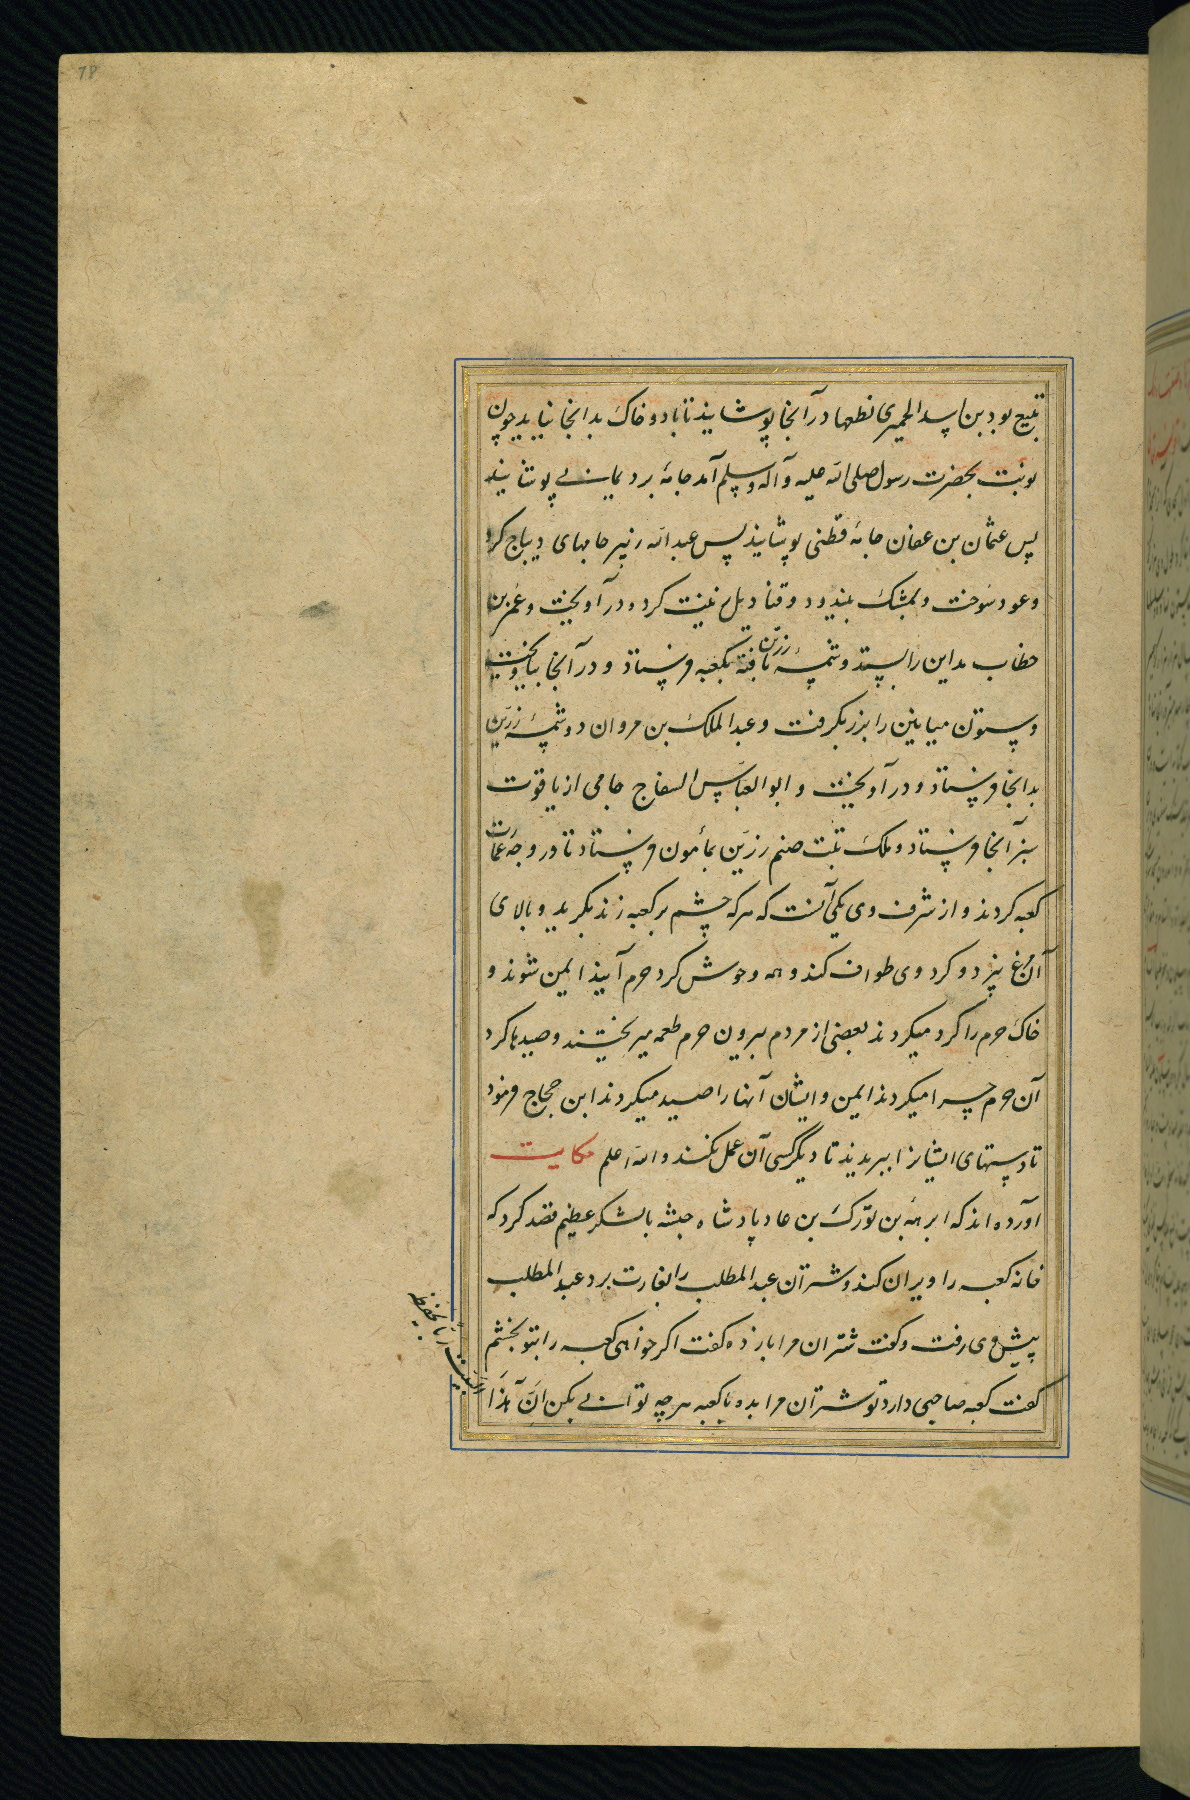 78
تبع بود بن اسد الحمیری نطعها در آنجا پوشانیذ تا باد و خاک بدانجا نیاید چون
نوبت بحضرت رسول صلی الله علیه وآله وسلم آمد جامهٔ برد یمانی پوشانید
پس عثمان بن عفان جامهٔ قطنی پوشانیذ پس عبد الله زبیر جامهای دیباج کرد
و عود سوخت و بمشک بیندود و قنادیل زینت کرد و در آویخت و عمر بن
خطاب مداین را بستد و شمسهٔ زرّین یافته بکعبه فرستاذ و در آنجا بیاویخت
وستون میانین را بزر بگرفت وعبد الملک بن مروان دو شمسهٔ زرّین
بدانجا فرستاذ و در آویخت و ابو العبّاس السفاح جامی از یاقوت
سبز آنجا فرستاد و ملک تبت صنم زرّین بمأمون فرستاد تا در وجه عمارت
کعبه کردند و از شرف وی یکی آنست که هر که چشم بر کعبه زند بگرید و بالای
آن مرغ نپرد و کرد وی طواف کند و همه وحوش کرد حرم آیند ایمن شوند و
خاک حرم را کرد میکردند بعضی از مردم بیرون حرم طعمه میریختند و صیدها کرد
آن حرم چرا میکردند ایمن و ایشان آنها را صید میکردند ابن حجاج فرمود
تا دستهای ایشانرا ببریدند تا دیگر کسی آن عمل نکند والله اعلم حکایت
آورده اند که ابرههٔ بن بن عاد پادشاه حبشه با لشکر عظیم قصد کرد که
خانه کعبه را ویران کند و شتران عبد المطلب را بغارت برد عبد المطلب
پیش وی رفت و گفت شتران مرا باز ده گفت اگر خواهی کعبه را بتو بخشم
گفت کعبه صاحبی دارد تو شتران مرا بده با کعبه هرچه توانی بکن انّ لهٰذا
البیت ربّا یحفظه